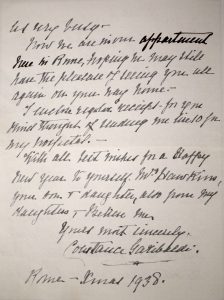 us very busy.
Now we are in our appartment
here in Rome, hoping we may still
have the pleasure of seeing you all
again on your way home.
I enclose regular receipt for you
kind thought of sending me lires for
my hospital.
With all best wishes for a Happy
New Year to yourself, Mrs Hawkins,
your son & daughter, also from my
daughter &
Yours most sincerely,
Constance Garibaldi.
Rome - Xmas 1938.